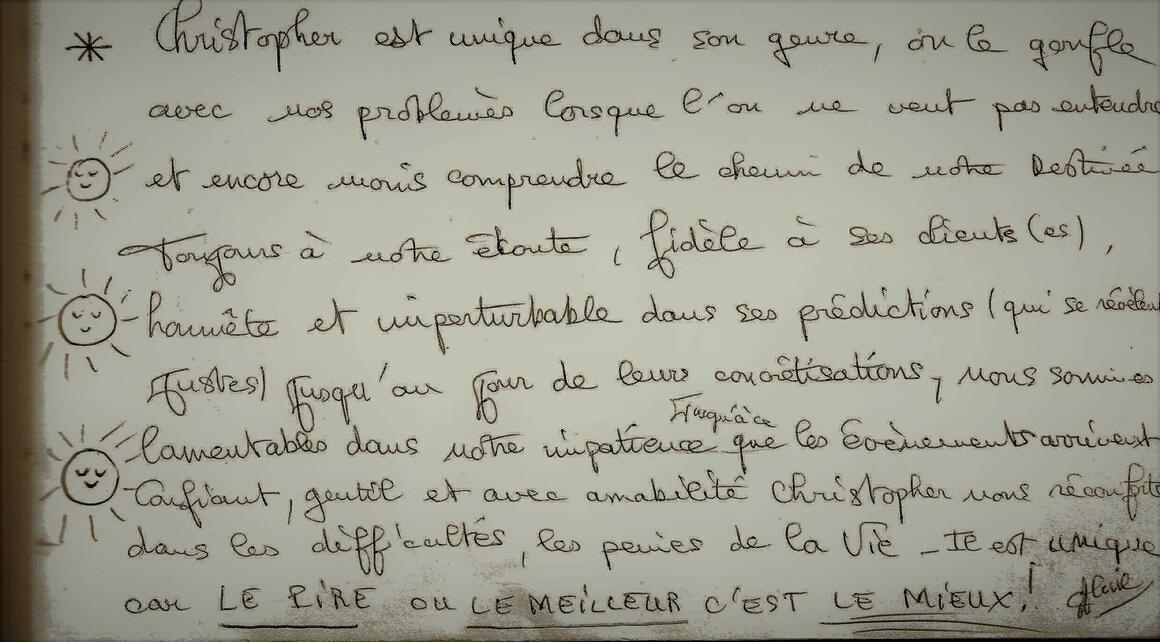 * Christopher est unique dans son genre, on le gonfle
avec nos problèmes lorsque l'on ne veut pas entendre
et encore moins comprendre le chemin de notre Destinée
Toujours à notre écoute, fidèle à ses clients(es),
honnête et imperturbable dans ses prédictions (qui se révèlent
Justes) Jusqu'au Jour de leurs concrétisations, nous sommes
Jusqu'à ce
lamentables dans notre impatience que les évènements arrivent
Confiant, gentil et avec amabilité Christopher nous réconforte
dans les difficultés, les peines de la Vie - Il est unique
car LE PIRE ou LE MEILLEUR C'EST LE MIEUX!